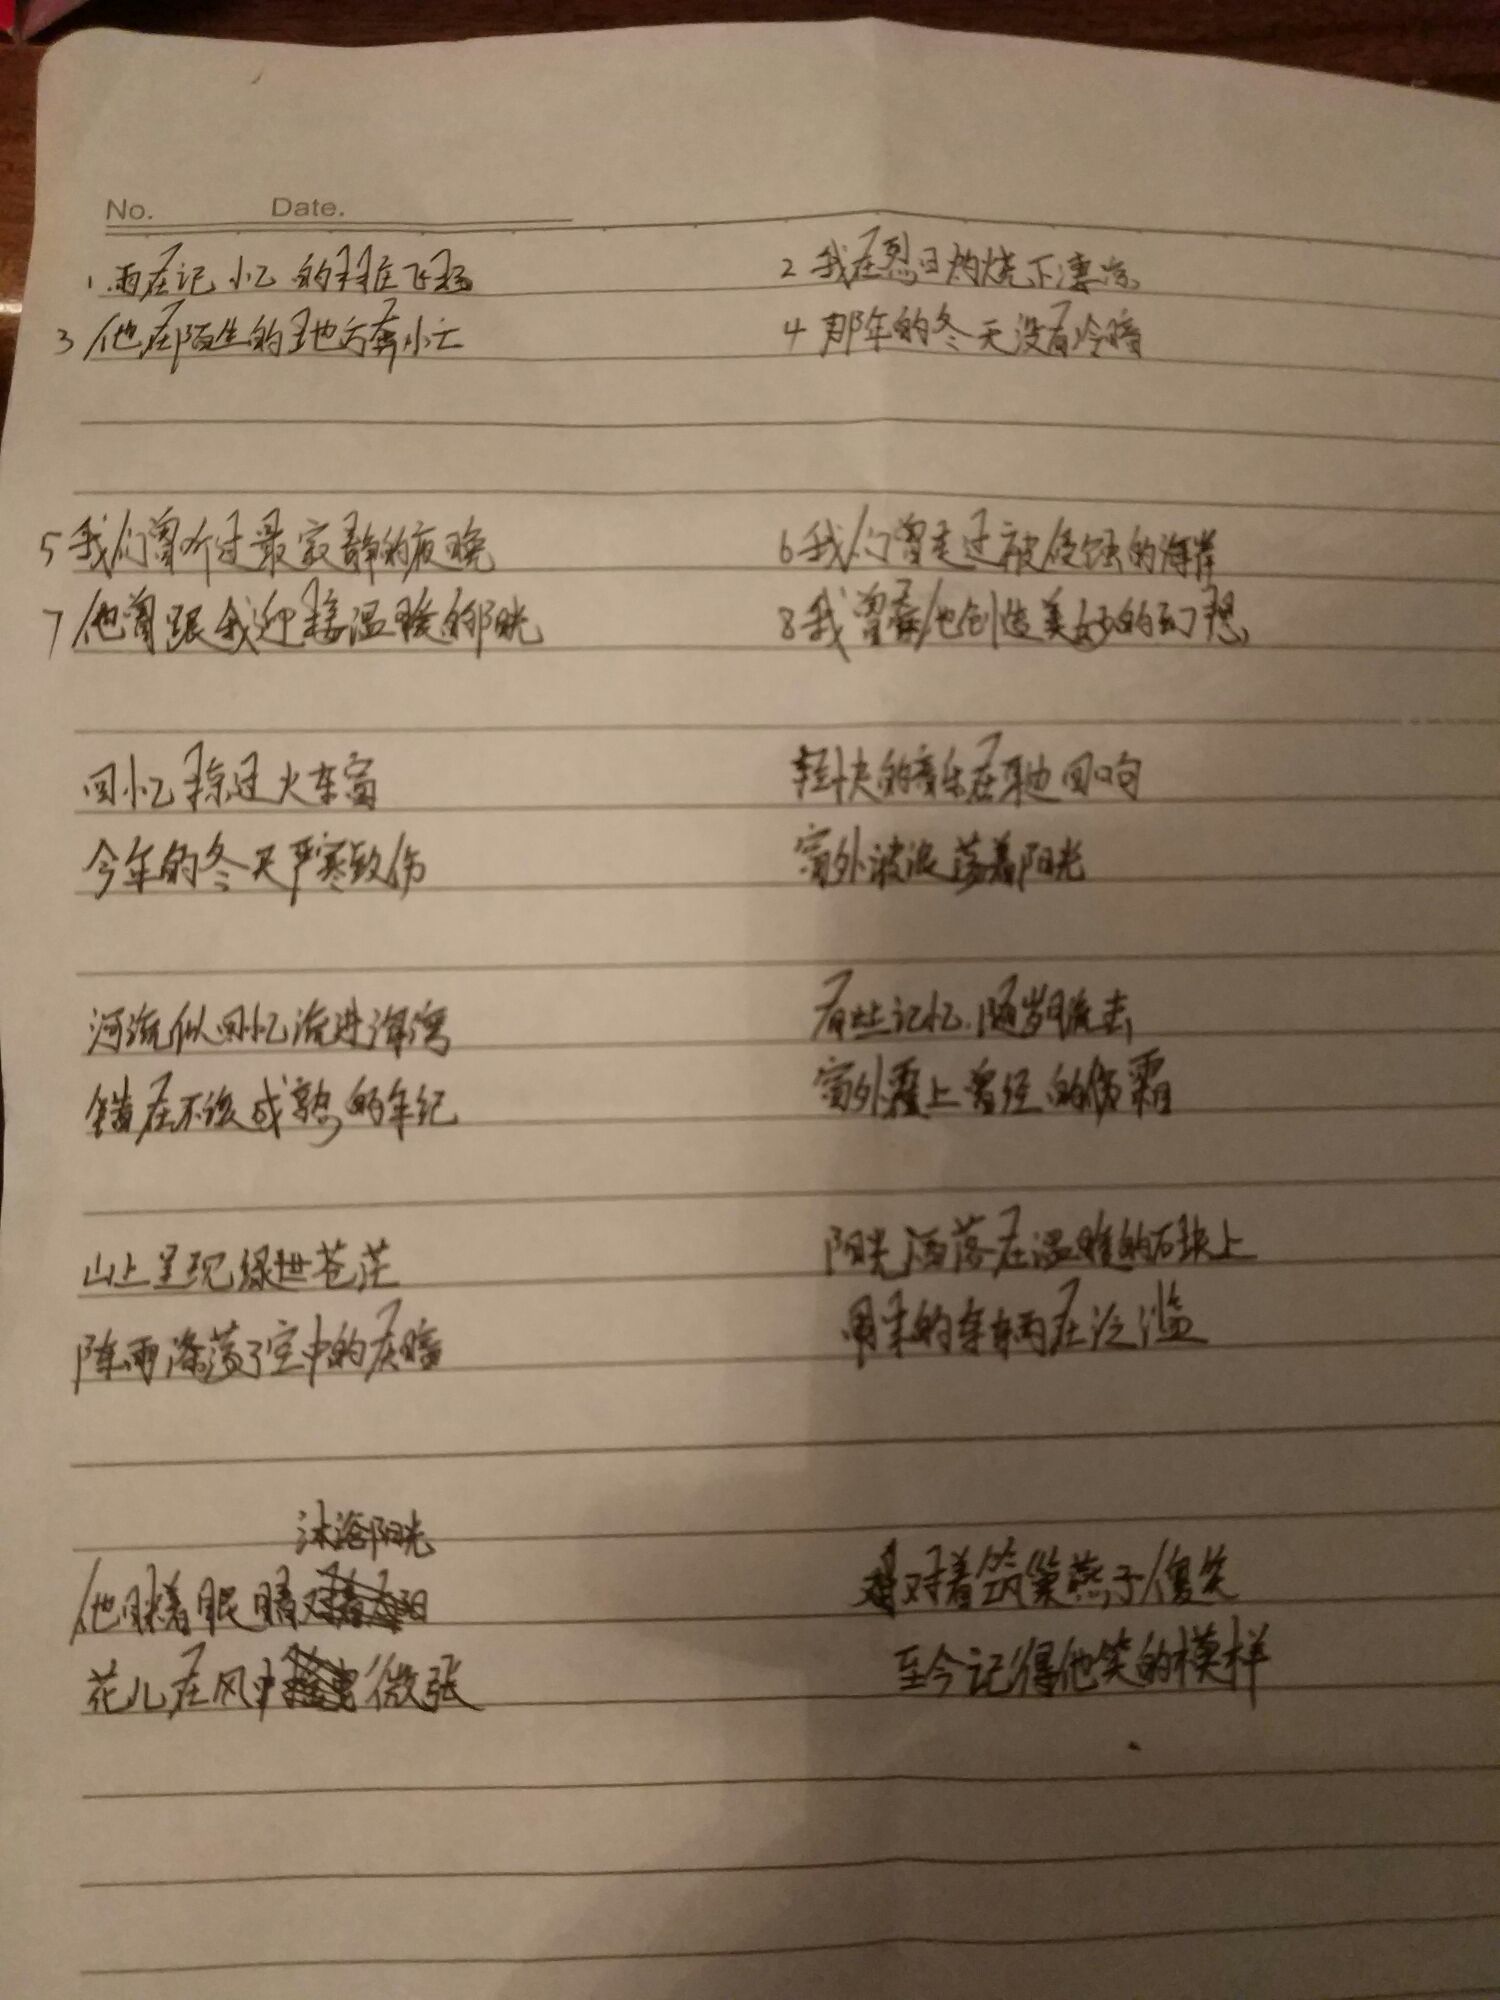 No. Date.
1. 雨在记忆的我在飞翔
2 我在烈日灼烧下凄凉
3 他在陌生的地方奔忙
4 那年的冬天没有冷暗
5 我们曾听过最寂静的夜晚
6 我们曾走过被侵蚀的海岸
7 他曾跟我迎接温暖的阳光
8 我曾看他创造美妙的幻想
回忆掠过火车窗
轻快的音乐在耳边回响
今年的冬天严寒致伤
窗外波浪荡着阳光
河流似回忆流进海湾
有些记忆随岁月流去
错在不该成熟的年纪
窗外覆上曾经的伤霜
山上呈现绿世苍茫
阳光洒落在温暖的石块上
阵雨涤荡了空中的灰暗
周末的车辆在泛滥
沐浴阳光
他眯着眼睛
对着筑巢燕子傻笑
花儿在风中微张
至今记得他笑的模样